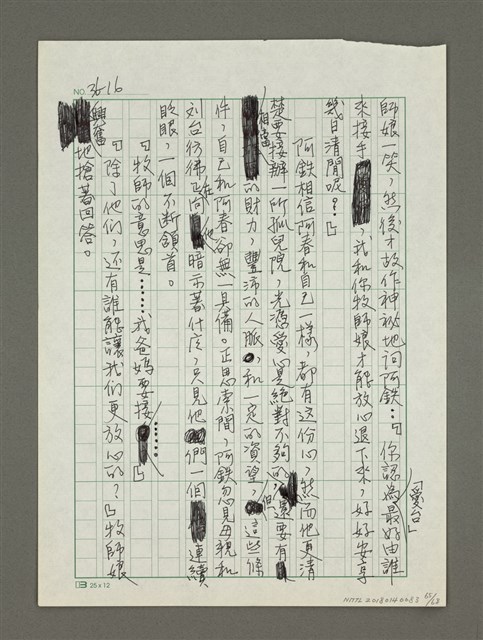 NO. 36-16
師娘一笑，然後才故作神祕地問阿鉄：「你認為最好由誰
來接手「愛台」，我和你牧師娘才能放心退下來，好好安享
幾日清閒呢？」
阿鉄相信阿春和自己一樣，都有這份心，然而他更清
楚要接辦一所孤兒院，光憑愛心是絕對不夠的，還要有
相當的財力，豐沛的人脈，和一定的資望，但這些條
件，自己和阿春卻無一具備。正思索間，阿鉄忽見母親和
刘台彷彿正向他暗示著什麼，只見他們一個連續
眨眼，一個不斷頷首。
「牧師的意思是……我爸媽要接……」
「除了他們，还有誰能讓我們更放心的？」牧師娘
興奮地搶著回答。
25 x 12
NMTL 20180140083 65/68